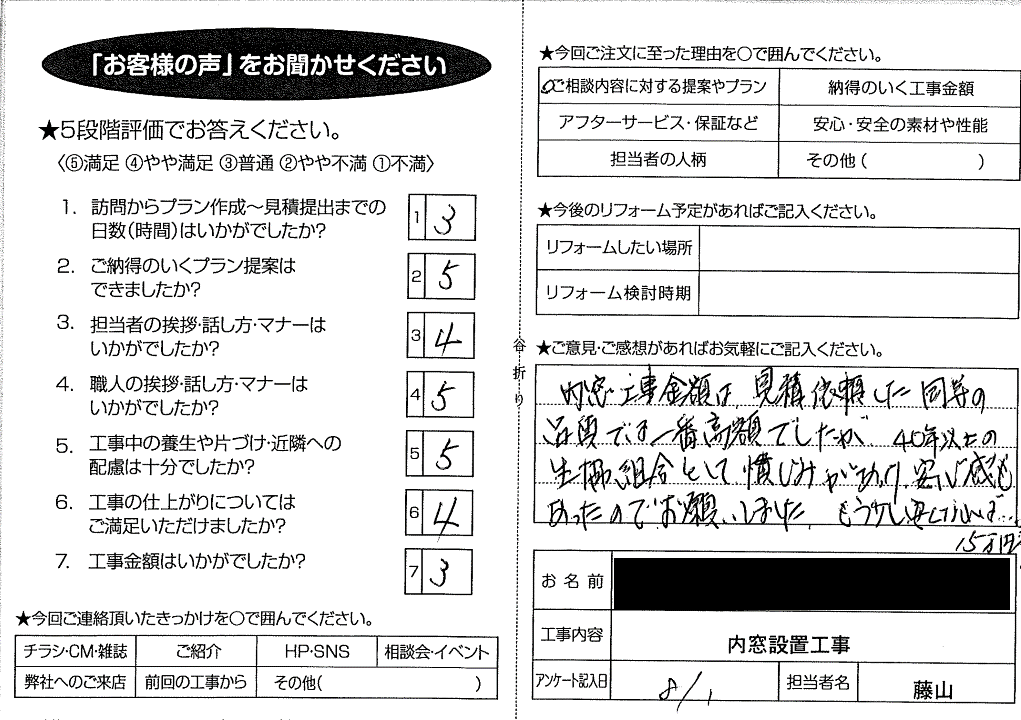 「お客様の声」をお聞かせください
★5段階評価でお答えください。
〈⑤満足 ④やや満足 ③普通 ②やや不満 ①不満〉
1. 訪問からプラン作成〜見積提出までの
日数(時間)はいかがでしたか?
1 3
2. ご納得のいくプラン提案は
できましたか?
2 5
3. 担当者の挨拶・話し方・マナーは
いかがでしたか?
3 4
4. 職人の挨拶・話し方・マナーは
いかがでしたか?
4 5
5. 工事中の養生や片づけ・近隣への
配慮は十分でしたか?
5 5
6. 工事の仕上がりについては
ご満足いただけましたか?
6 4
7. 工事金額はいかがでしたか?
7 3
★今回ご連絡頂いたきっかけを○で囲んでください。
チラシ・CM・雑誌 ご紹介 HP・SNS 相談会・イベント
弊社へのご来店 前回の工事から その他( )
谷折り
★今回ご注文に至った理由を○で囲んでください。
ご相談内容に対する提案やプラン 納得のいく工事金額
アフターサービス・保証など 安心・安全の素材や性能
担当者の人柄 その他( )
★今後のリフォーム予定があればご記入ください。
リフォームしたい場所
リフォーム検討時期
★ご意見・ご感想があればお気軽にご記入ください。
内窓工事金額は、見積依頼した同等の
品質では一番高額でしたが 40年以上の
生協組合として慣じみがあり、安心感も
あったのでお願いしました。もう少し安ければ…
15万円
お名前
工事内容 内窓設置工事
アンケート記入日 8/1 担当者名 藤山